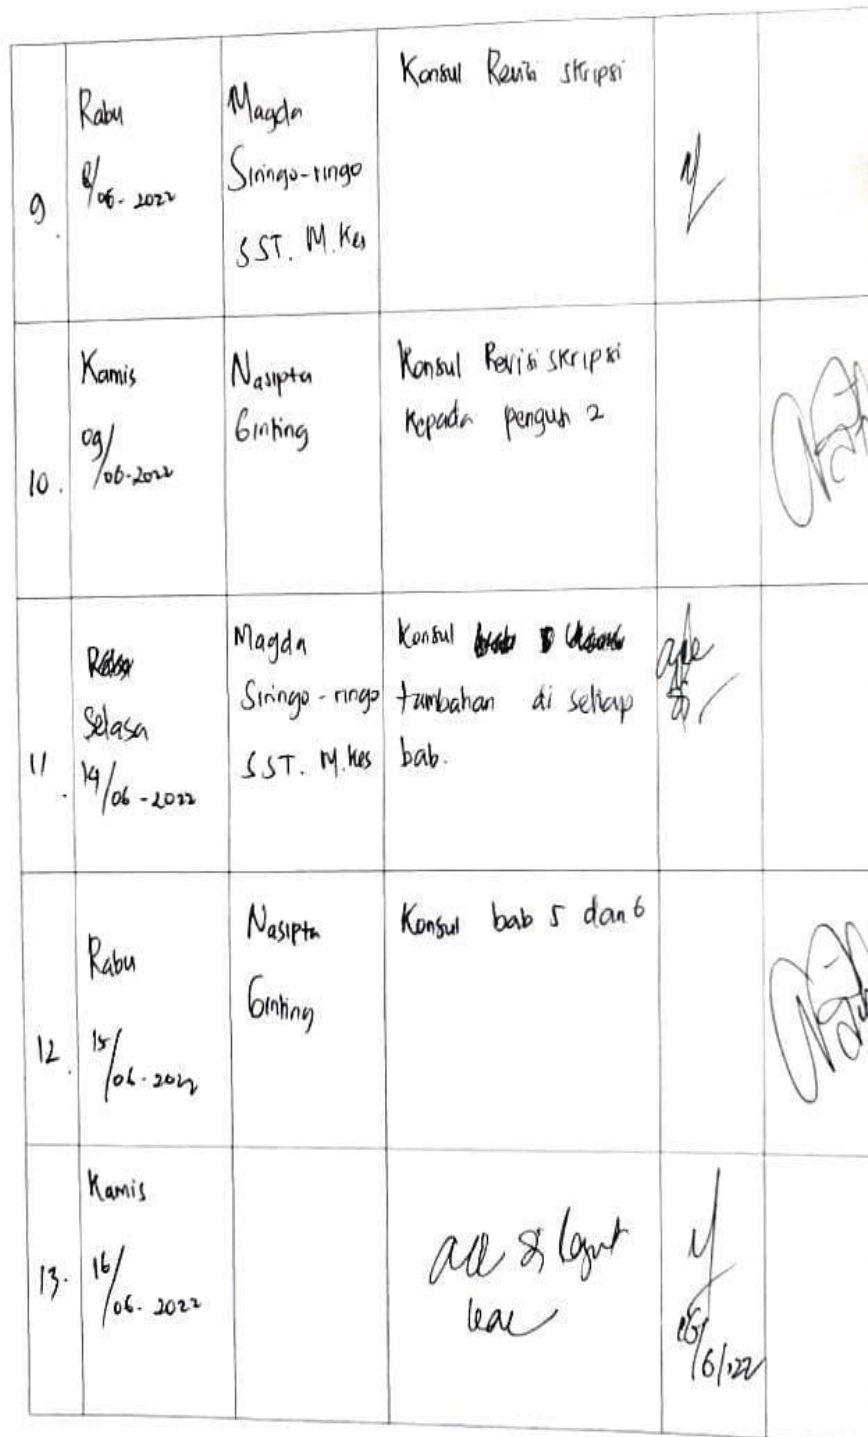 9.
Rabu
8/06-2022
Magda
Siringo-ringo
SST. M.Kes
Konsul Revisi skripsi
10.
Kamis
09/06-2022
Nasipta
Ginting
Konsul Revisi skripsi
kepada penguji 2
11.
Selasa
14/06-2022
Magda
Siringo-ringo
SST. M.Kes
Konsul
tambahan di setiap
bab.
12.
Rabu
15/06-2022
Nasipta
Ginting
Konsul bab 5 dan 6
13.
Kamis
16/06-2022
acc
/6/22